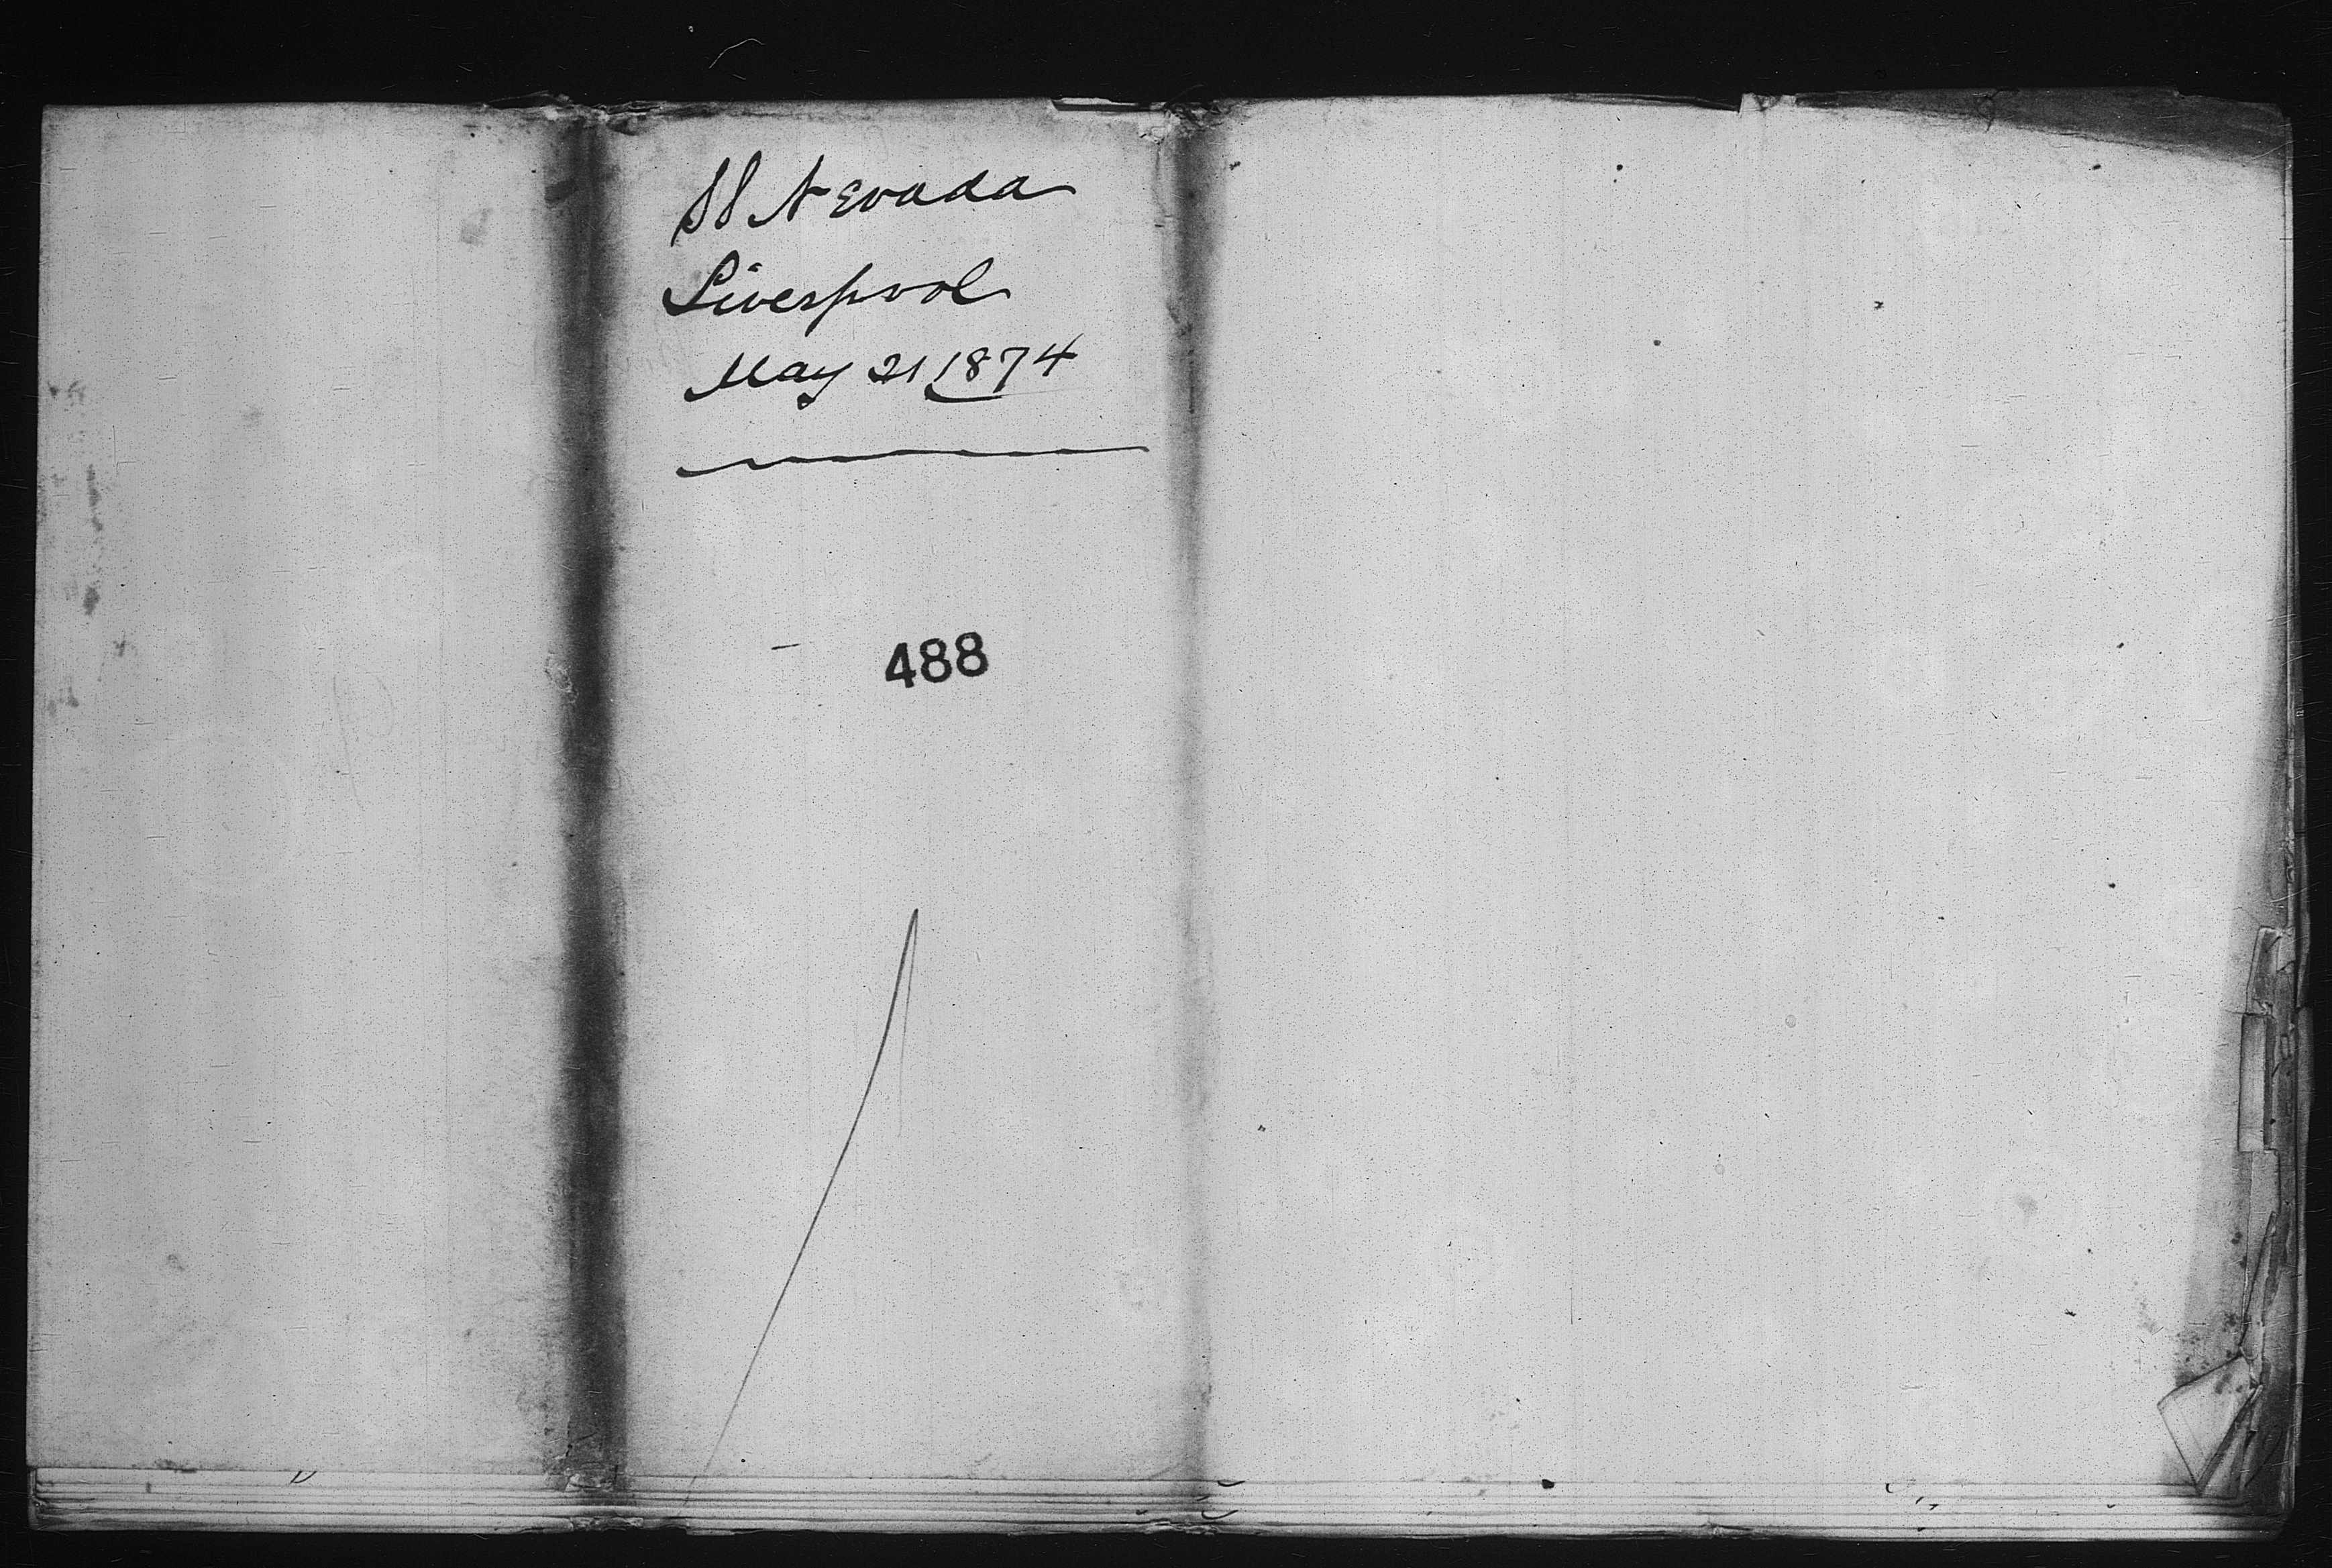 SS Nevada
Liverpool
May 21 1874
488